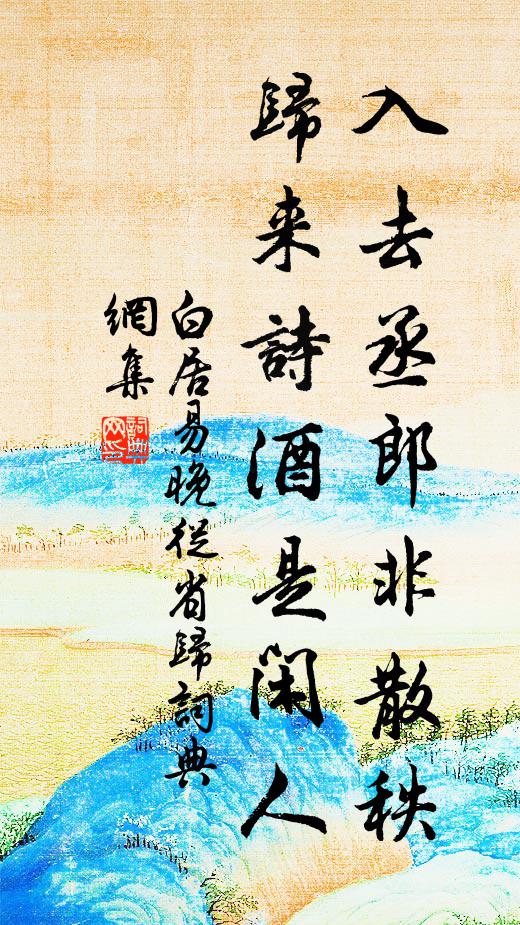 入去丞郎非散秩
歸来詩酒是閑人
白居易晚從省歸詞典
網集